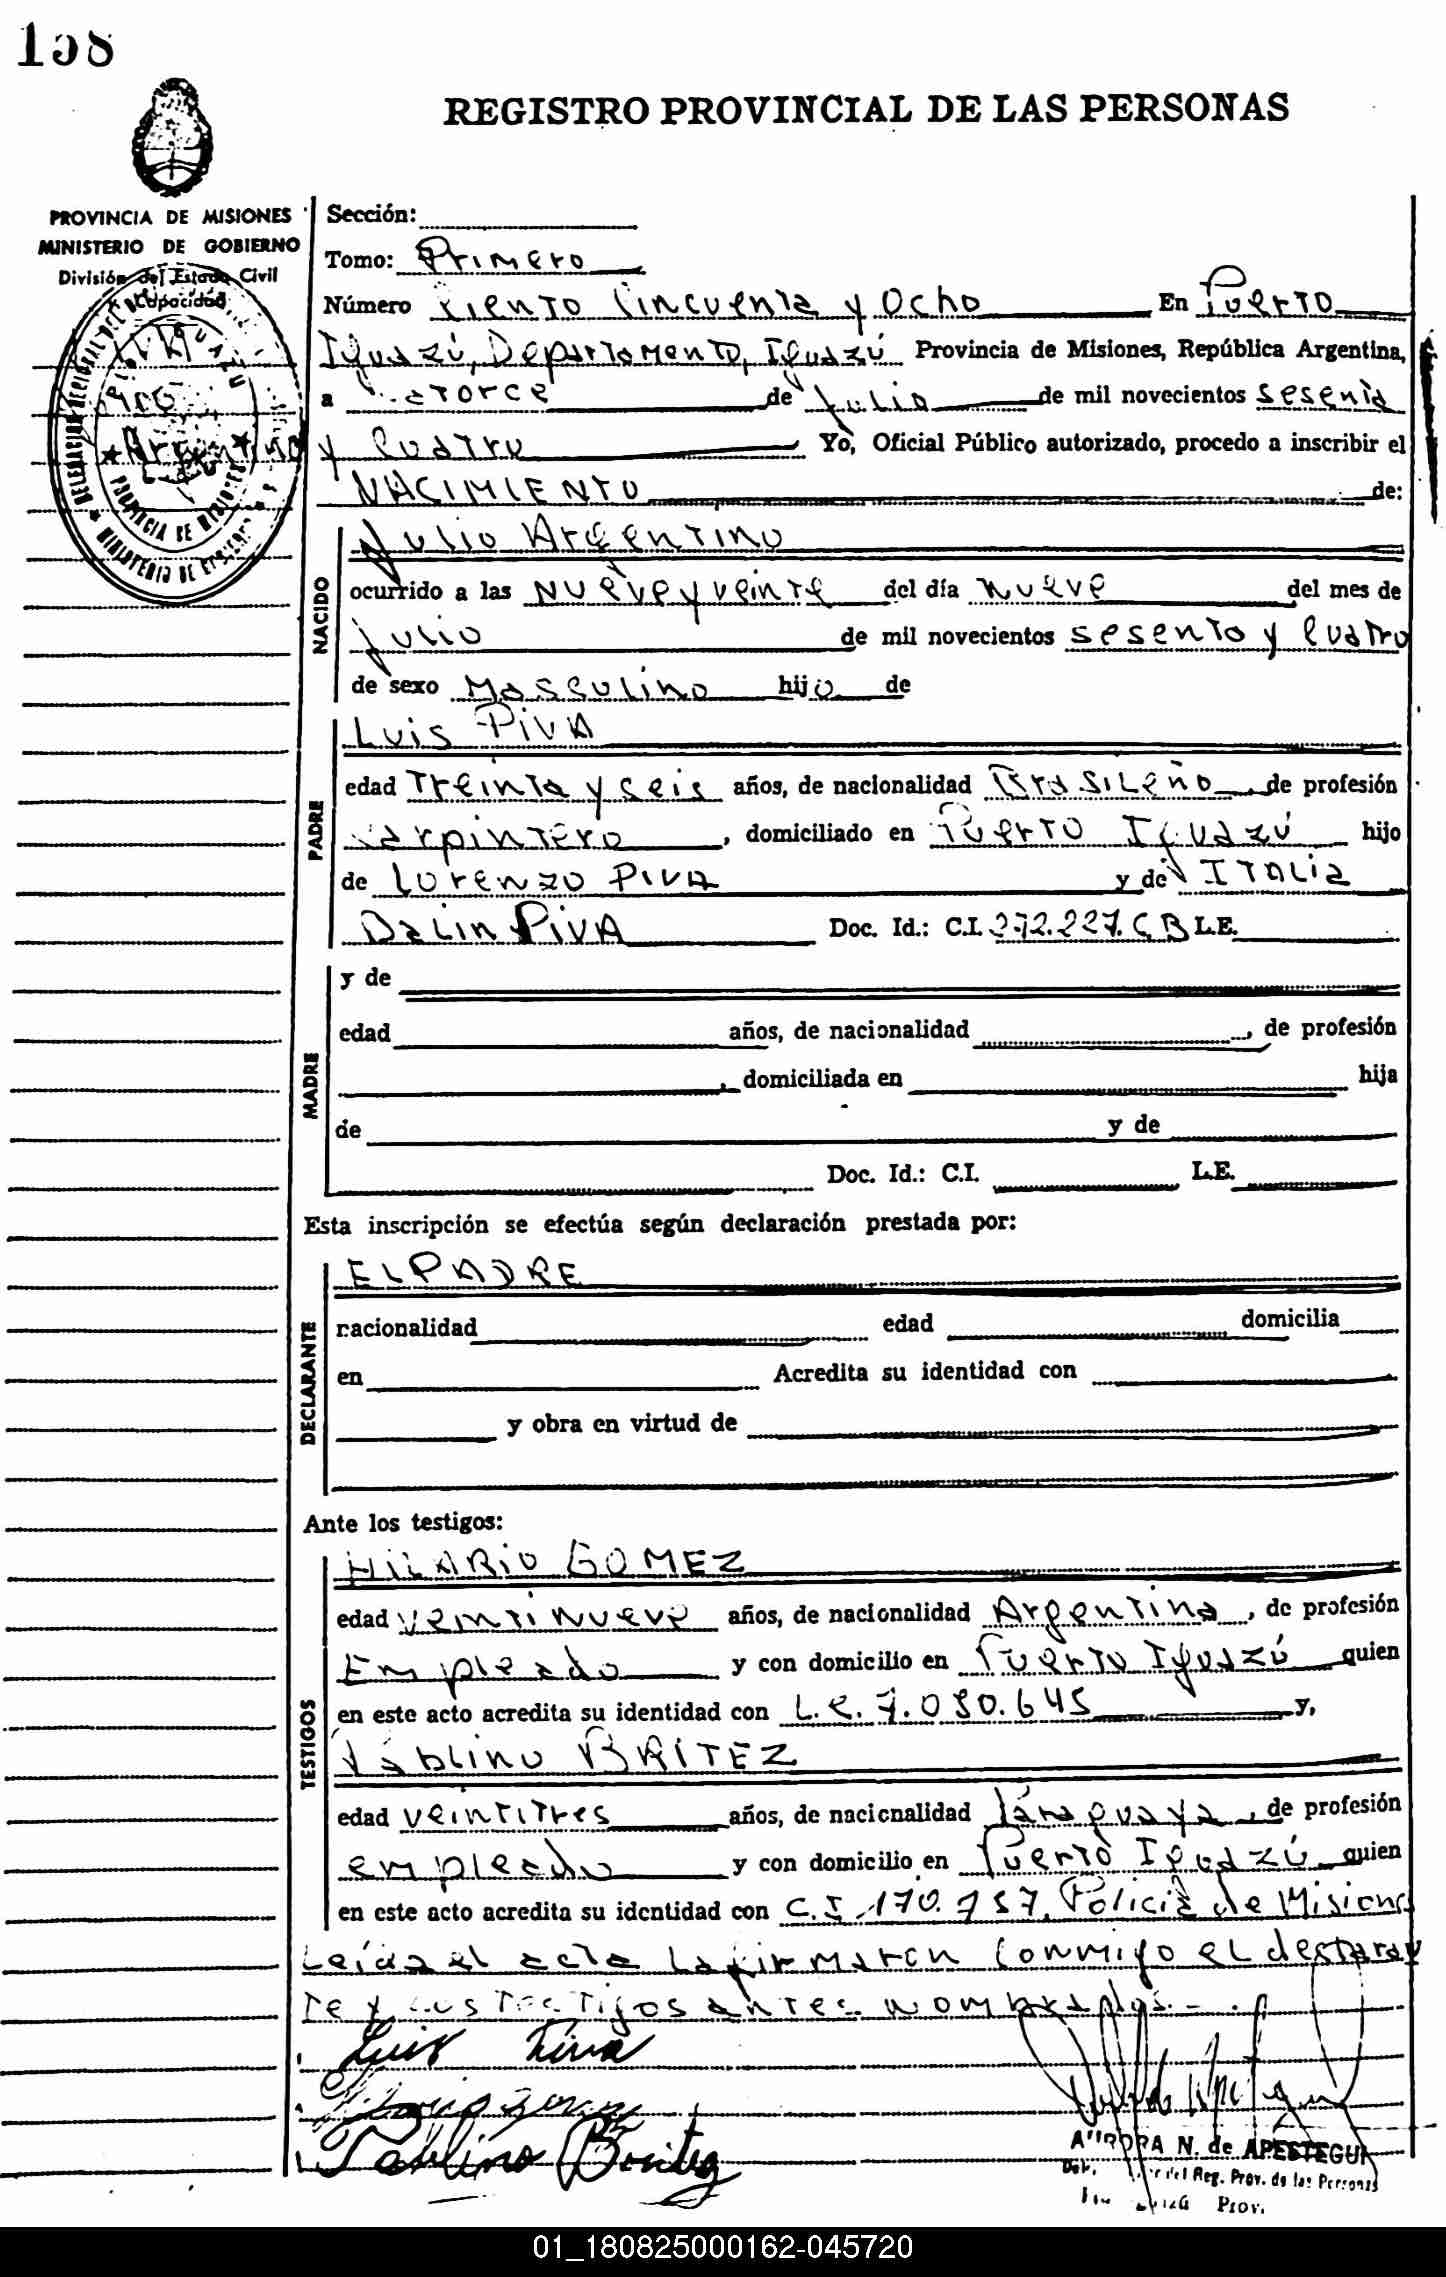 158
REGISTRO PROVINCIAL DE LAS PERSONAS
PROVINCIA DE MISIONES
MINISTERIO DE GOBIERNO
División del Estado Civil
Capacidad
Piva
Julio
Argentino
Sección:
Tomo: Primero
Número Ciento Cincuenta y Ocho En Puerto
Iguazú, Departamento, Iguazú Provincia de Misiones, República Argentina,
a Catorce de Julio de mil novecientos sesenta
y Cuatro Yo, Oficial Público autorizado, procedo a inscribir el
NACIMIENTO de:
NACIDO
Julio Argentino
ocurrido a las Nueve y veinte del día nueve del mes de
julio de mil novecientos sesenta y Cuatro
de sexo Masculino hijo de
PADRE
Luis PIVA
edad Treinta y seis años, de nacionalidad Brasileño, de profesión
Carpintero, domiciliado en Puerto Iguazú hijo
de Lorenzo PIVA y de ITALIA
Dalin PIVA Doc. Id.: C.I. 272.227. C B L.E.
MADRE
y de
edad años, de nacionalidad , de profesión
, domiciliada en hija
de y de
Doc. Id.: C.I. L.E.
Esta inscripción se efectúa según declaración prestada por:
DECLARANTE
EL PADRE
nacionalidad edad domicilia
en Acredita su identidad con
y obra en virtud de
Ante los testigos:
TESTIGOS
HILARIO GOMEZ
edad veintinueve años, de nacionalidad Argentina, de profesión
Empleado y con domicilio en Puerto Iguazú quien
en este acto acredita su identidad con L.E. 7.050.645 y,
Pablino
edad veintitres años, de nacionalidad Paraguaya, de profesión
empleado y con domicilio en Puerto Iguazú quien
en este acto acredita su identidad con C.I. 170.757. Policía de Misiones
Leída el acta la firmaron Conmigo el declaran
te y los Testigos antes nombrados.-
Luis Piva
Pablino Benitez
AURORA N. de APESTEGUI
del Reg. Prov. de las Personas
Prov.
01_180825000162-045720